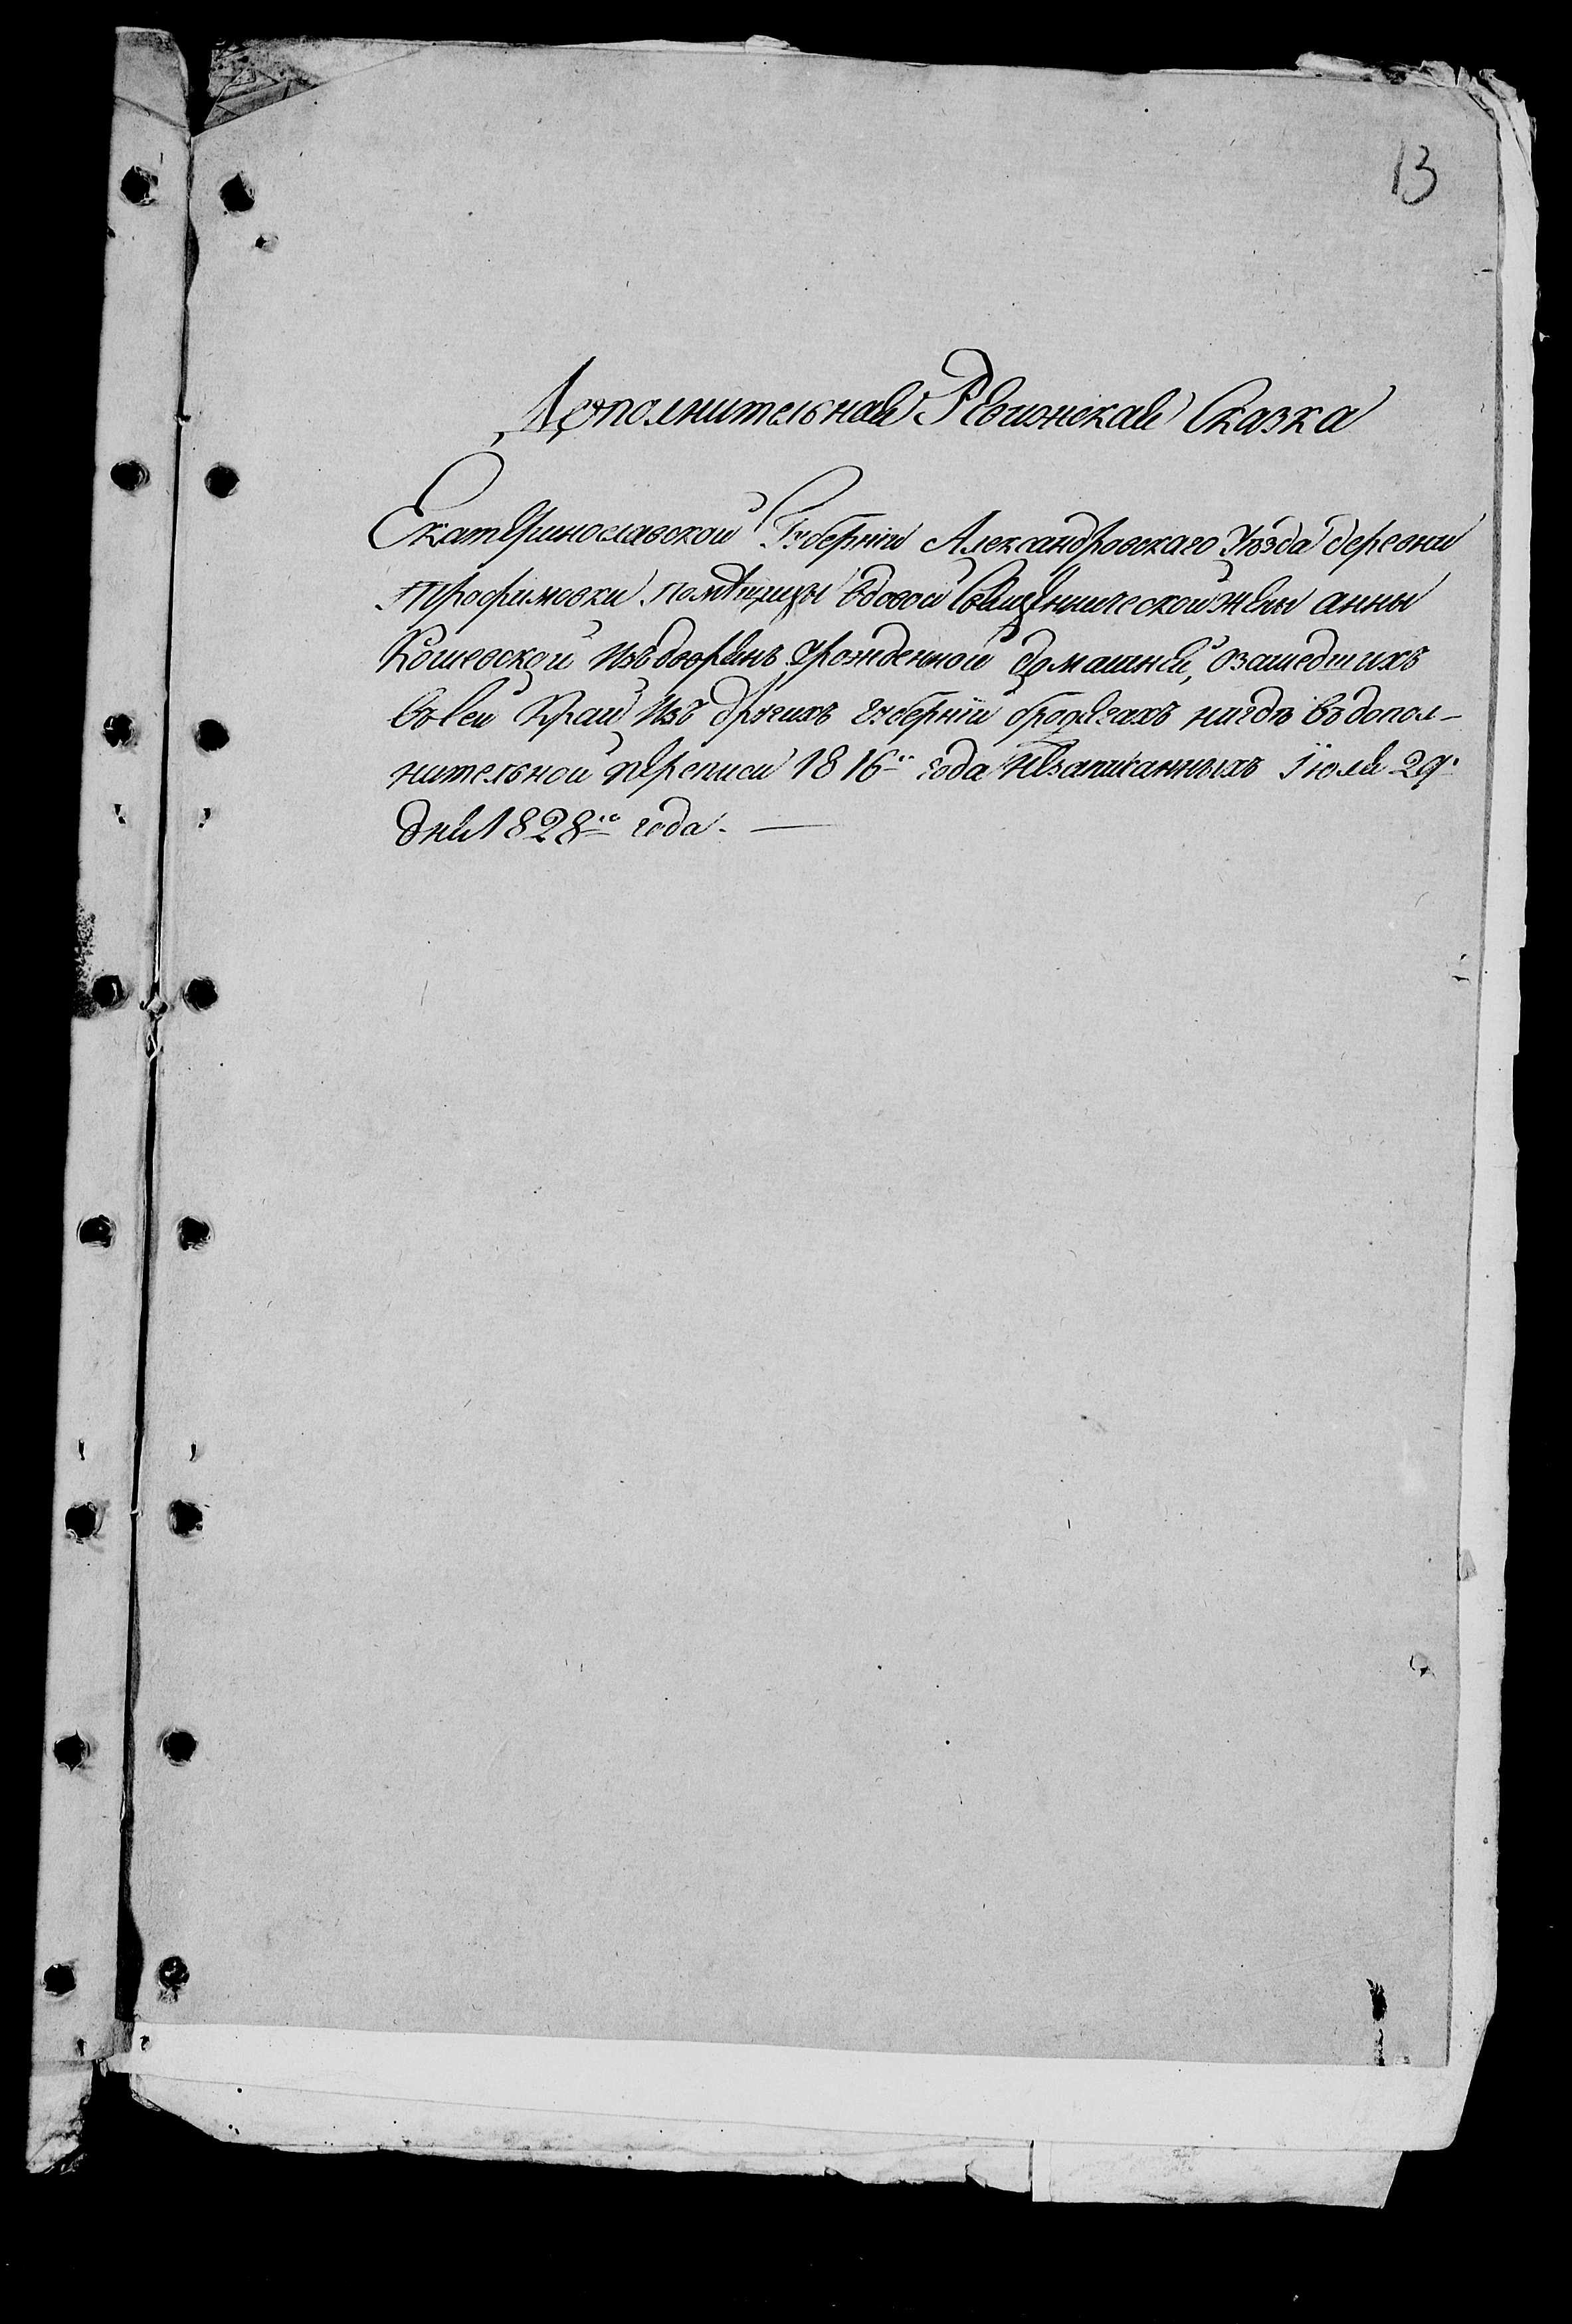 13
Дополнительная Ревижская Сказка
Екатеринославской Губерніи Александровскаго Уѣзда деревни
Трофимовки помѣщицы вдовой Священнической жены анны
Кошевской изъ дворянъ урожденной домашней, озашедшихъ
въ сей Край изъ другихъ губерній бродягахъ нигдѣ въ допол-
нительной переписи 1816го года незаписанныхъ Іюля 29.
дня 1828го года. —